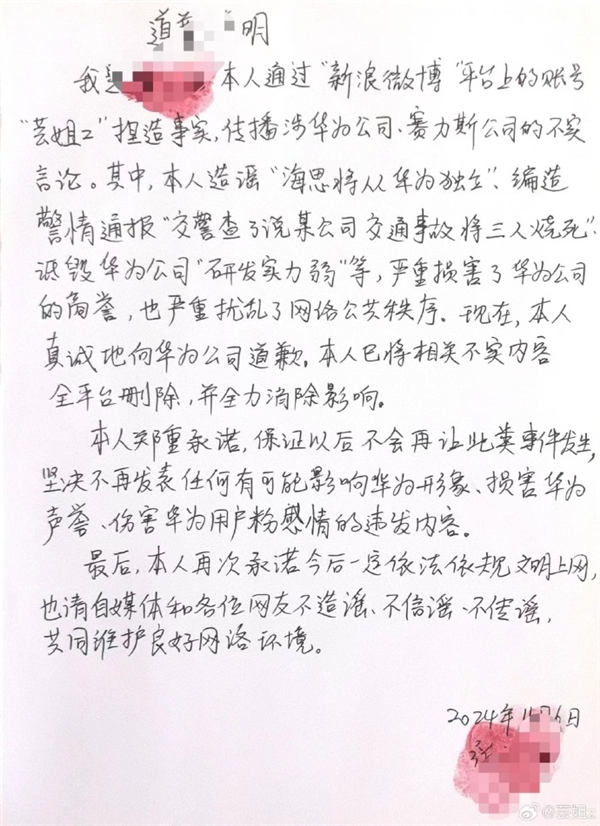 道 明
我是 本人通过“新浪微博”平台上的账号
“芸姐z”捏造事实，传播涉华为公司、赛力斯公司的不实
言论。其中，本人造谣“海思将从华为独立”、编造
警情通报“交警查了说某公司交通事故将三人烧死”、
诋毁华为公司“研发实力弱”等，严重损害了华为公司
的商誉，也严重扰乱了网络公共秩序。现在，本人
真诚地向华为公司道歉。本人已将相关不实内容
全平台删除，并全力消除影响。
本人郑重承诺，保证以后不会再让此类事件发生，
坚决不再发表任何有可能影响华为形象、损害华为
声誉、伤害华为用户粉感情的违发内容。
最后，本人再次承诺今后一定依法依规文明上网，
也请自媒体和各位网友不造谣、不信谣、不传谣，
共同维护良好网络环境。
2024年 日
@芸姐z